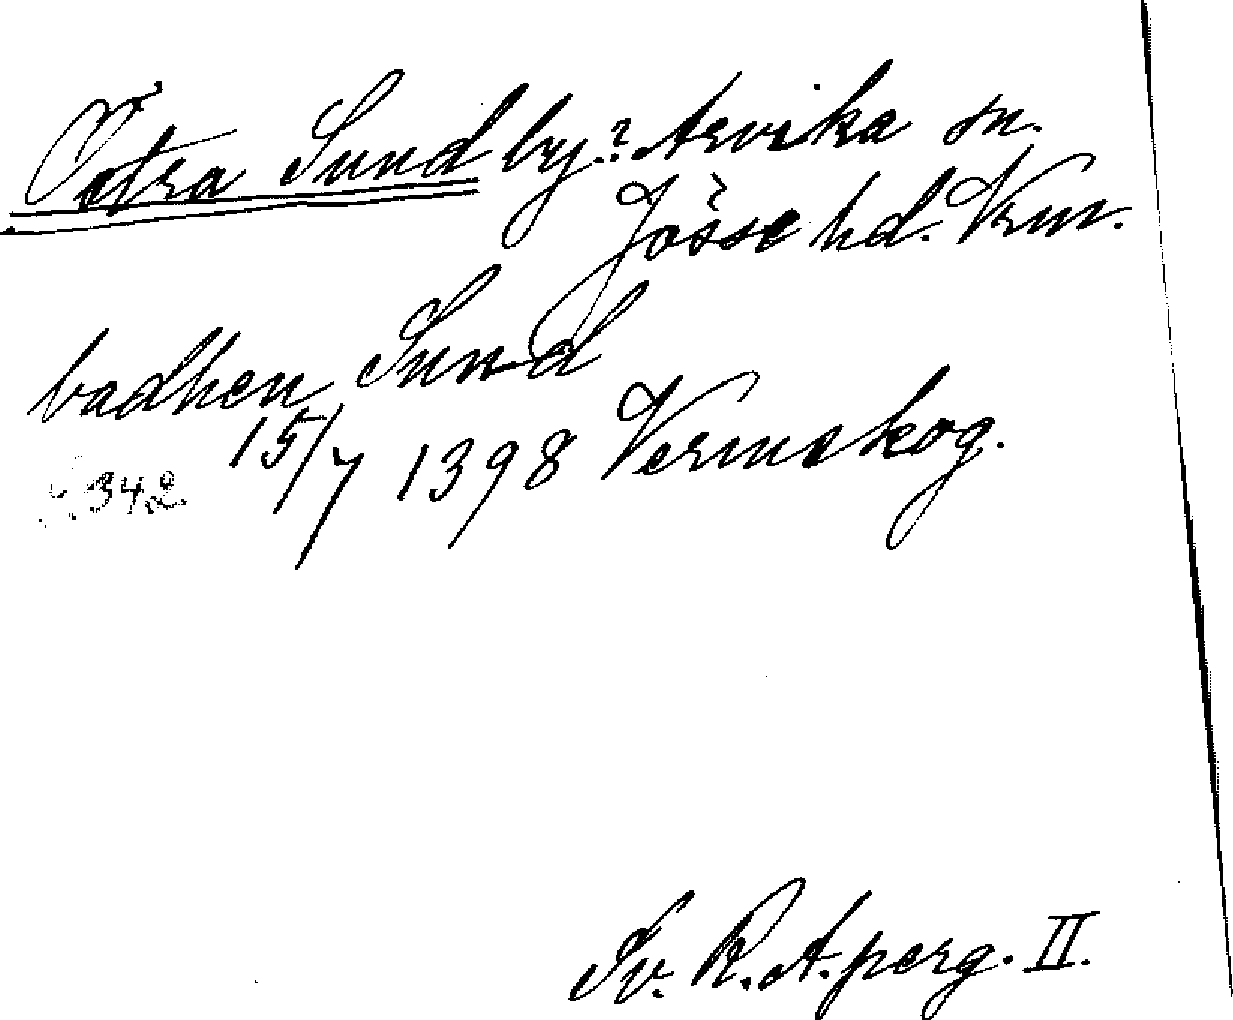 Östra Sund by? Arvika sn.
Jösse hd. Vrm.
badhen Sund
15/7 1398 Vermskog.
342
Sv. R. A. perg. II.